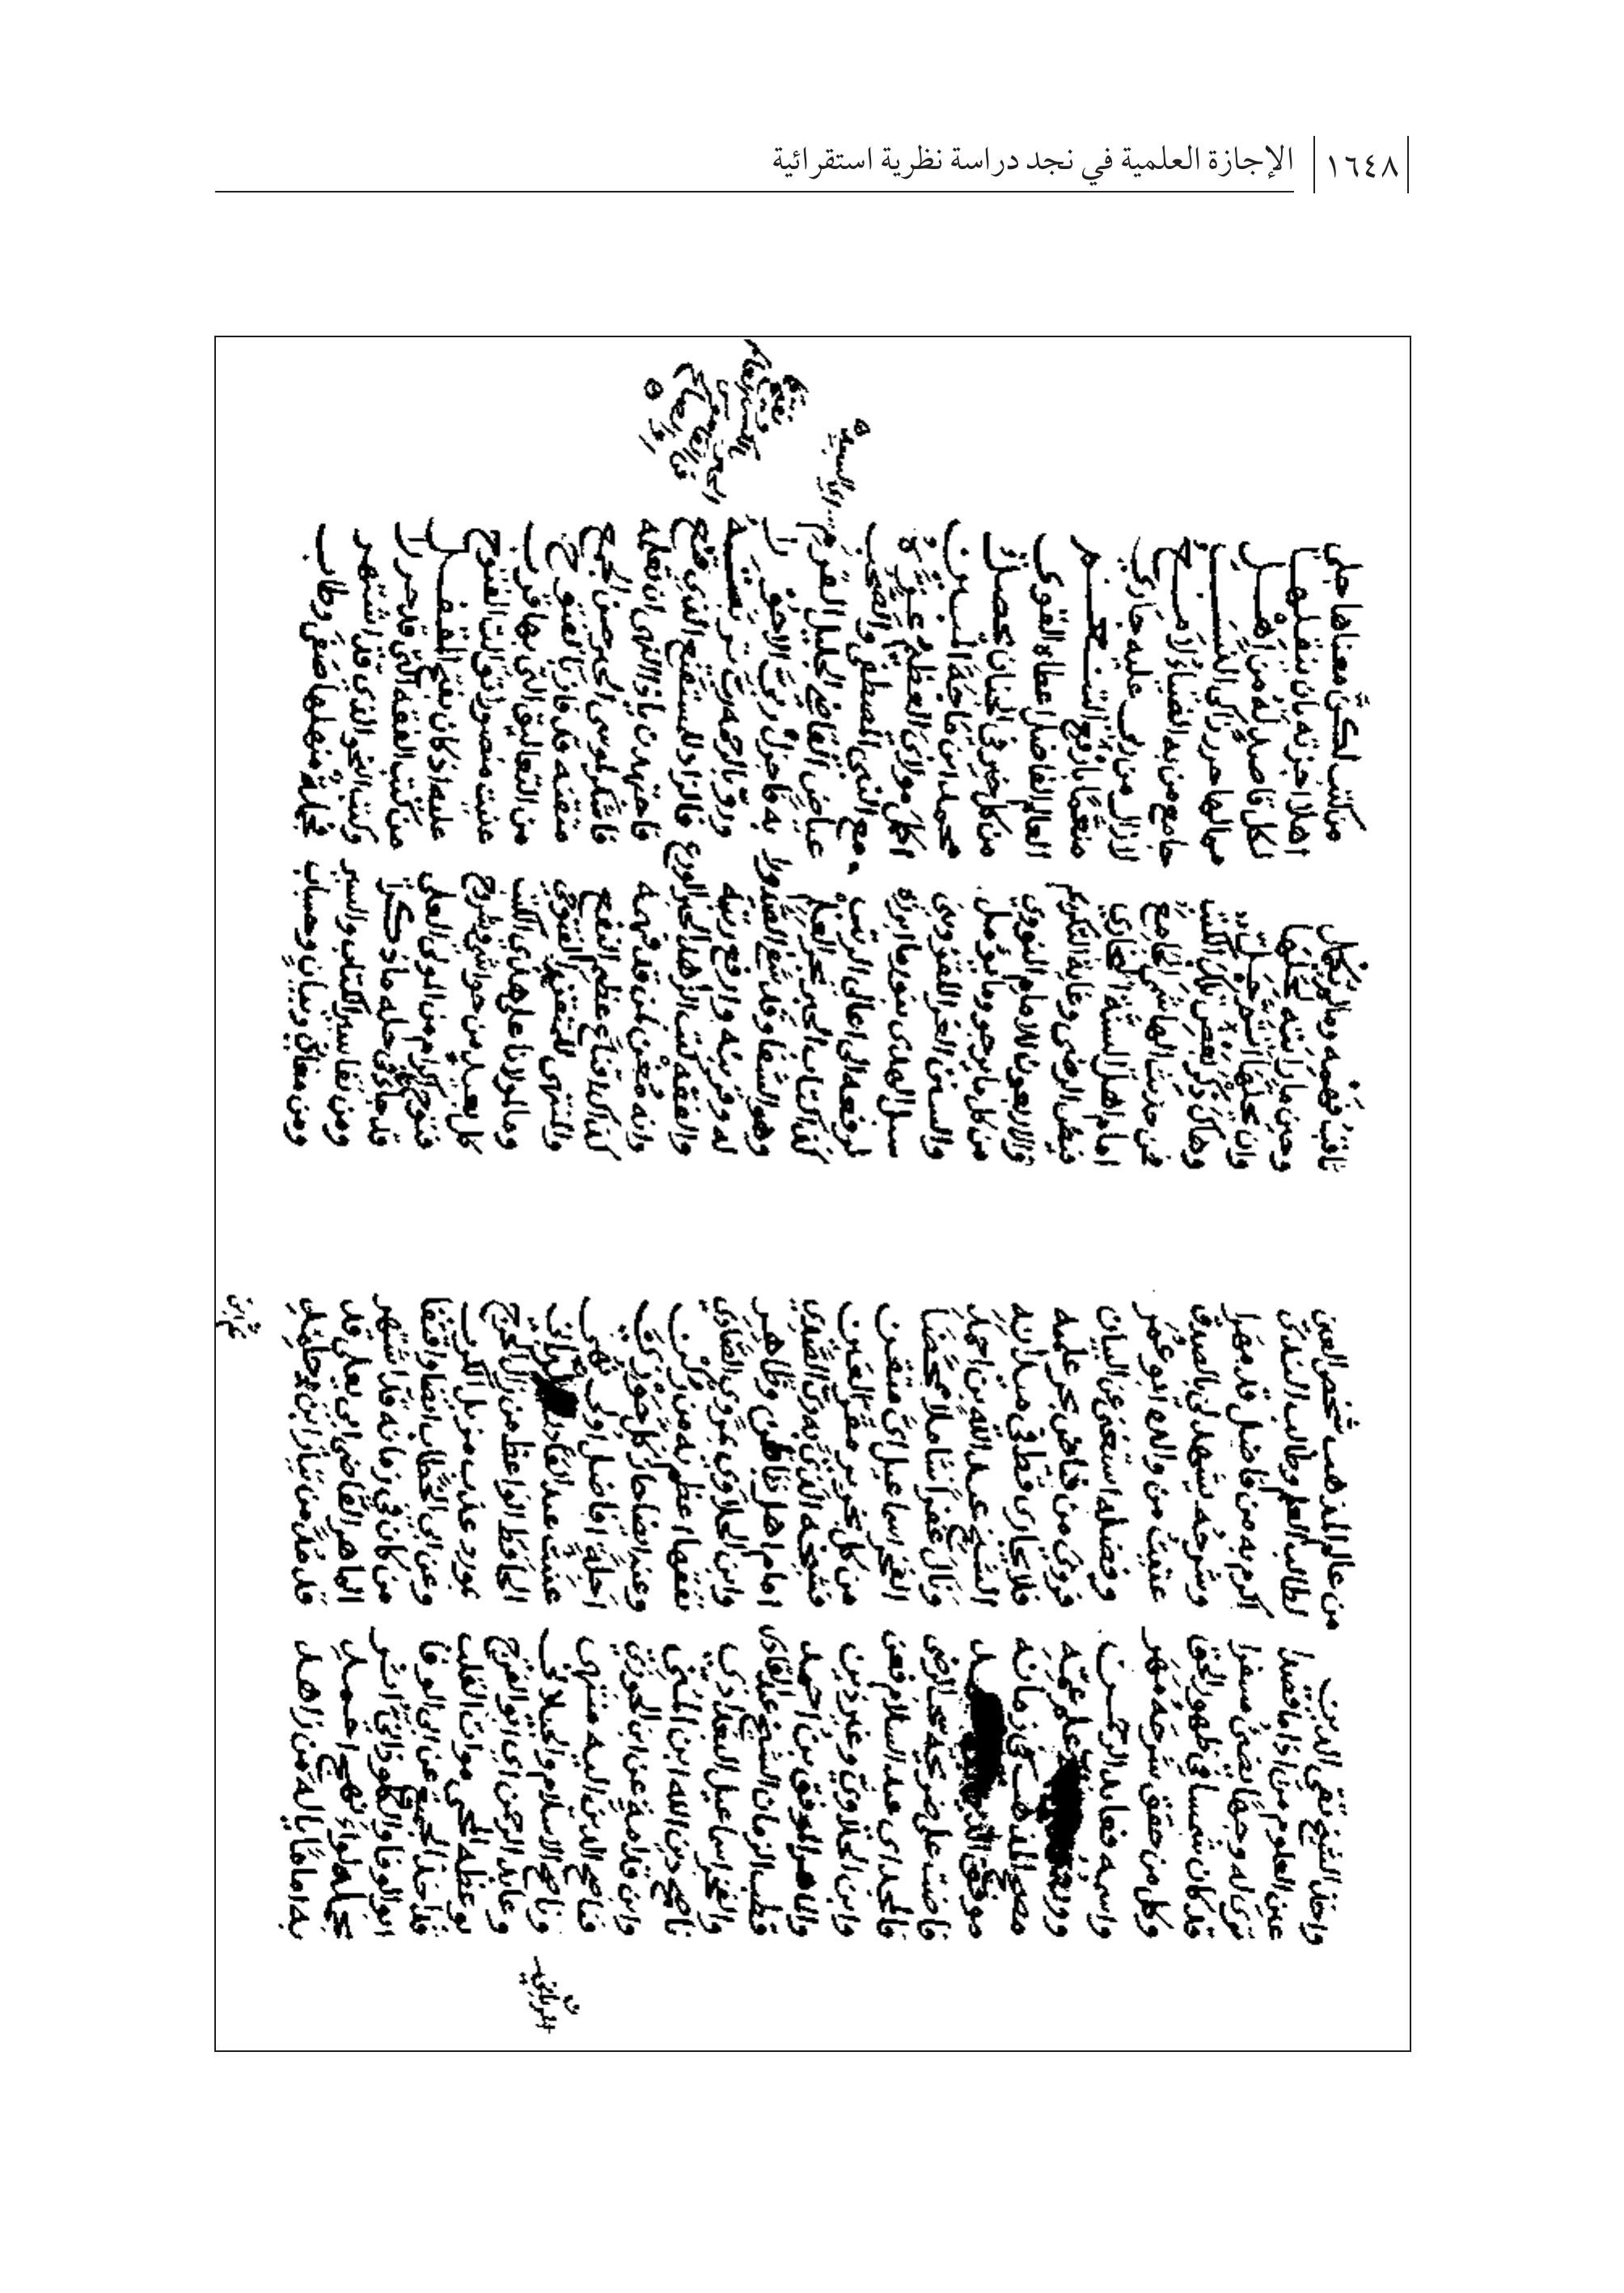 ١٦٤٨
الإجازة العلمية في نجد دراسة نظرية استقرائية
واخذ الشيخ تقي الدين من عالم المذهب شخص العين
عين العلوم من اذا ما قصدا لطالب العلم وطالب الندى
ترى له وجها يضيء مسفرا اكرم به من فاضل قد مهرا
قد كان شمسا في ظهور الحق وشرحه يشهد لي بالصدق
وكل من حقق شرحه مهر عنيت من والده ابو عمر
واسمه فعابد الرحمن وفضله استغنى عن البيان
علم عمه فروى من فاض بحر علمه
مصحح المذهب في زمانه فلا يجارى قط في ميدانه
موفق الدين الشيخ عبد الله بن احمد
فاضت على ضريحه سحب الرضى ونال غفرا شاملا ممحضا
فالمجد اي عبد السلام فعن الفخر اسماعيل اي متقن
وابن الحلاوي وغير ذين من كل نحرير مقر العين
والماهر الموفق بن احمد فشيخه الذي به
قطب الزمان الشيخ عبد القادر امام اهل باطن وظاهر
والفخر اسماعيل البغدادي وابن الحلاوي يروي الصادي
ناصح دين الله ابن المني تفقها اعظم به من ركن
وابن قدامة عن ابن الجوزي وعنه ايضا حاز كل حوز
فناصح الدين اليه منتهى اجلة افاضل اولي نهى
وناصح الاسلام والجيلاني عنيت عبد القادر
وعابد الرحمن اي ابو الفرج الحافظ الواعظ من زال الحرج
لوعظه المحي موات القلب بورد عذب مزيل الكرب
قد اخذ الجميع عن ابي الوفا وعن ابي الخطاب ايضا واقتفا
ابو الوفا والكلوذاني اثر من كان في زمانه قد اشتهر
بحمله لواء نهج احمد الماهر القاضي ابي يعلى قد
به اماما ياله من زاهد قد مد من تيار ابن حامد
ثاقب فهمه من كتب لكن معناها جلي
وحين ما رايته اهلا اجزته بان ينقلها
وان يحلها لكل قاصد له من
وهاك ذكر بعض تلك الكتب مما لها حرر زاكي النسب
من حديث الهاشمي الجامع جامع من به الضياء لامع
امام اهل السنة البخاري لازال من ربي عليه جاري
فيض الرضى وغاية التكريم منعما بارفع
والاربعون للامام النووي العالم الفاضل اعطاه القوي
من كل ما يرجو وما يؤمل من كل خير في الجنان يحصل
والسنن الغر للقزويني محمد ابن ماجة المبين
سبل الهدى بنور ما ابرزه مولاي العظيم عزه
لرفعه الى اعالي الرتب مع النبي المصطفى والصحب
كذا كتاب الحبر بحر العلم عياض القاضي الجليل القرم
وهو الشفا وقد شفى الصدورا به فاجزل ربي الاجورا
له وقربه وارفع رتبته ورو بالرحمة رب تربته
والفقه كتب الزاهد الحبر الورع فالزاد للمستقنع الذي قنع
وانه مغن لمن قد فهمه فاجتهدن ياذا النهى ان تعلمه
كذاك اقناع عظيم النفع فاشكر لموسى الحبر حسن الجمع
والمنتهى للمتقن الفتوحي متقنه قد فاز بالفتوح
وما لمولانا على هذي الكتب من التعاليق التي بها قرب
كل بعيد من حواش وشروح عنيت منصورا الفتوح
فتوح اكرام من المولى العلي عليه اذ كان بفتح المقفل
قد حله ما ذكرا من كتب الفقه التي قد حررا
ومن تفاسير الكتاب والسير وكتب النحو الذي قد اشتهر
ومن معاني وبيان وحساب فجملة منهلها صفى وطاب